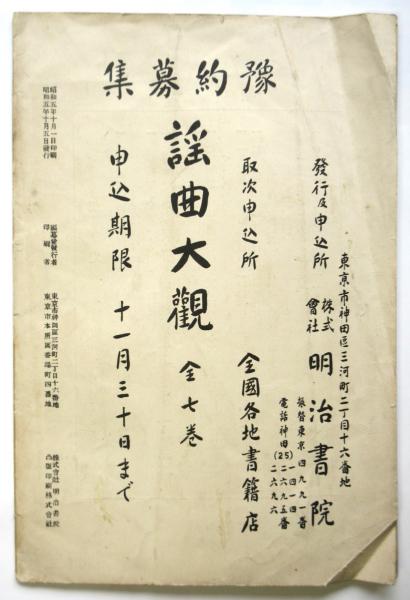 豫約募集
東京市神田區三河町二丁目十六番地
發行及申込所 株式會社 明治書院
振替東京四九九一番
電話神田(25)
一四一四
二六九五番
二六九六
取次申込所 全國各地書籍店
謡曲大觀 全七卷
申込期限 十一月三十日まで
昭和五年十月一日印刷
昭和五年十月五日發行
編輯發行者
印刷者
東京市神田區三河町二丁目十六番地
東京市本所區番場町四番地
株式會社明治書院
凸版印刷株式會社